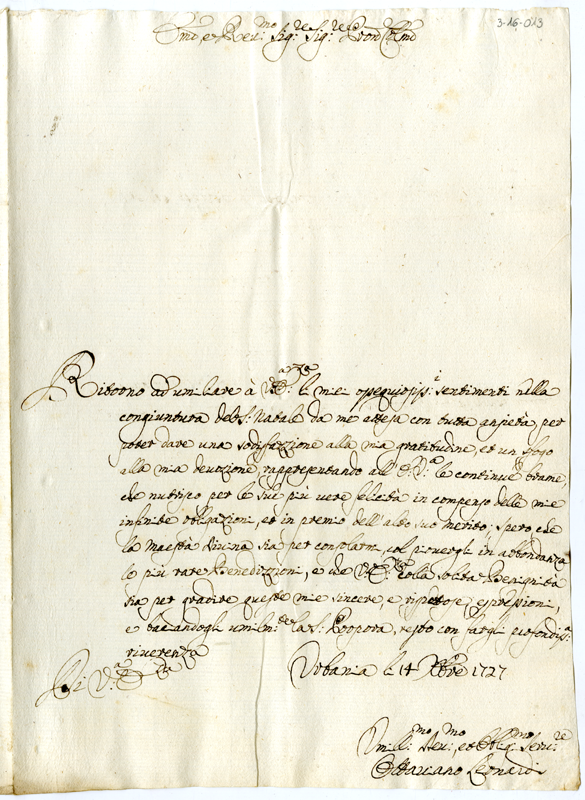 3-16-013
Em̃o, e Rev.mo Sig.re Sig.re Pron Col.mo
Ritorno ad umiliare à V.Emza li miei ossequiosiss.i sentimenti nella
congiuntura del S. Natale da me attesa con tutta ansietà per
poter dare una sodisfazzione alla mia gratitudine, et un sfogo
alla mia devozione, rappresentando all' E. V.a le continue brame,
che nutrisco per le sue più vere felicità in compenso delle mie
infinite obligazioni, et in premio dell' alto suo merito: spero che
la Maestà divina sia per consolarmi, col piovergli in abbondanza
le più rare Benedizzioni, e che V.Emza colla solita Benignità
sia per gradire queste mie sincere, e rispettose espressioni,
e baciandogli umilm.te la S. Porpora, resto con fargli profondiss.a
riverenza
Di V.a Em.za
Urbania li 14 Xbre 1727
Umill.mo Dev.mo, et Oblig.mo Serv.re
Ottaviano Leonardi